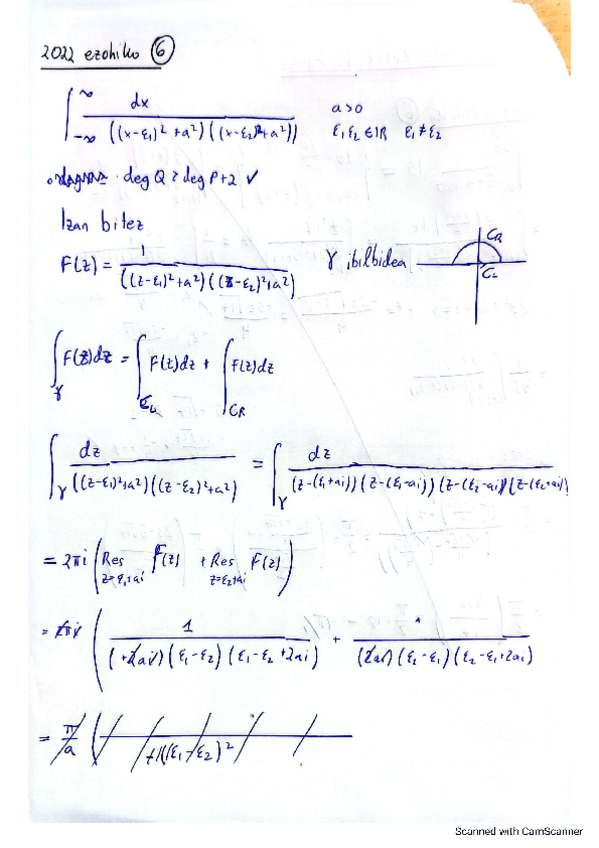 2022 ezohiko ⑥
∫_{-∞}^{∞} dx / (((x-ε₁)²+a²)((x-ε₂)²+a²))   a>0   ε₁ε₂∈ℝ   ε₁≠ε₂
deg Q ≥ deg P+2 ✓
Izan bitez
F(z) = 1 / (((z-ε₁)²+a²)((z-ε₂)²+a²))   γ ibilbidea   C_R   C_L
∫_γ F(z)dz = ∫ F(z)dz + ∫_{C_R} F(z)dz
∫_γ dz / (((z-ε₁)²+a²)((z-ε₂)²+a²)) = ∫_γ dz / ((z-(ε₁+ai))(z-(ε₁-ai))(z-(ε₂-ai))(z-(ε₂+ai)))
= 2πi (Res_{z=ε₁+ai} F(z) + Res_{z=ε₂+ai} F(z))
= 2πi ( 1 / ((+2ai)(ε₁-ε₂)(ε₁-ε₂+2ai)) + 1 / ((2ai)(ε₂-ε₁)(ε₂-ε₁+2ai))
= π/a (
Scanned with CamScanner